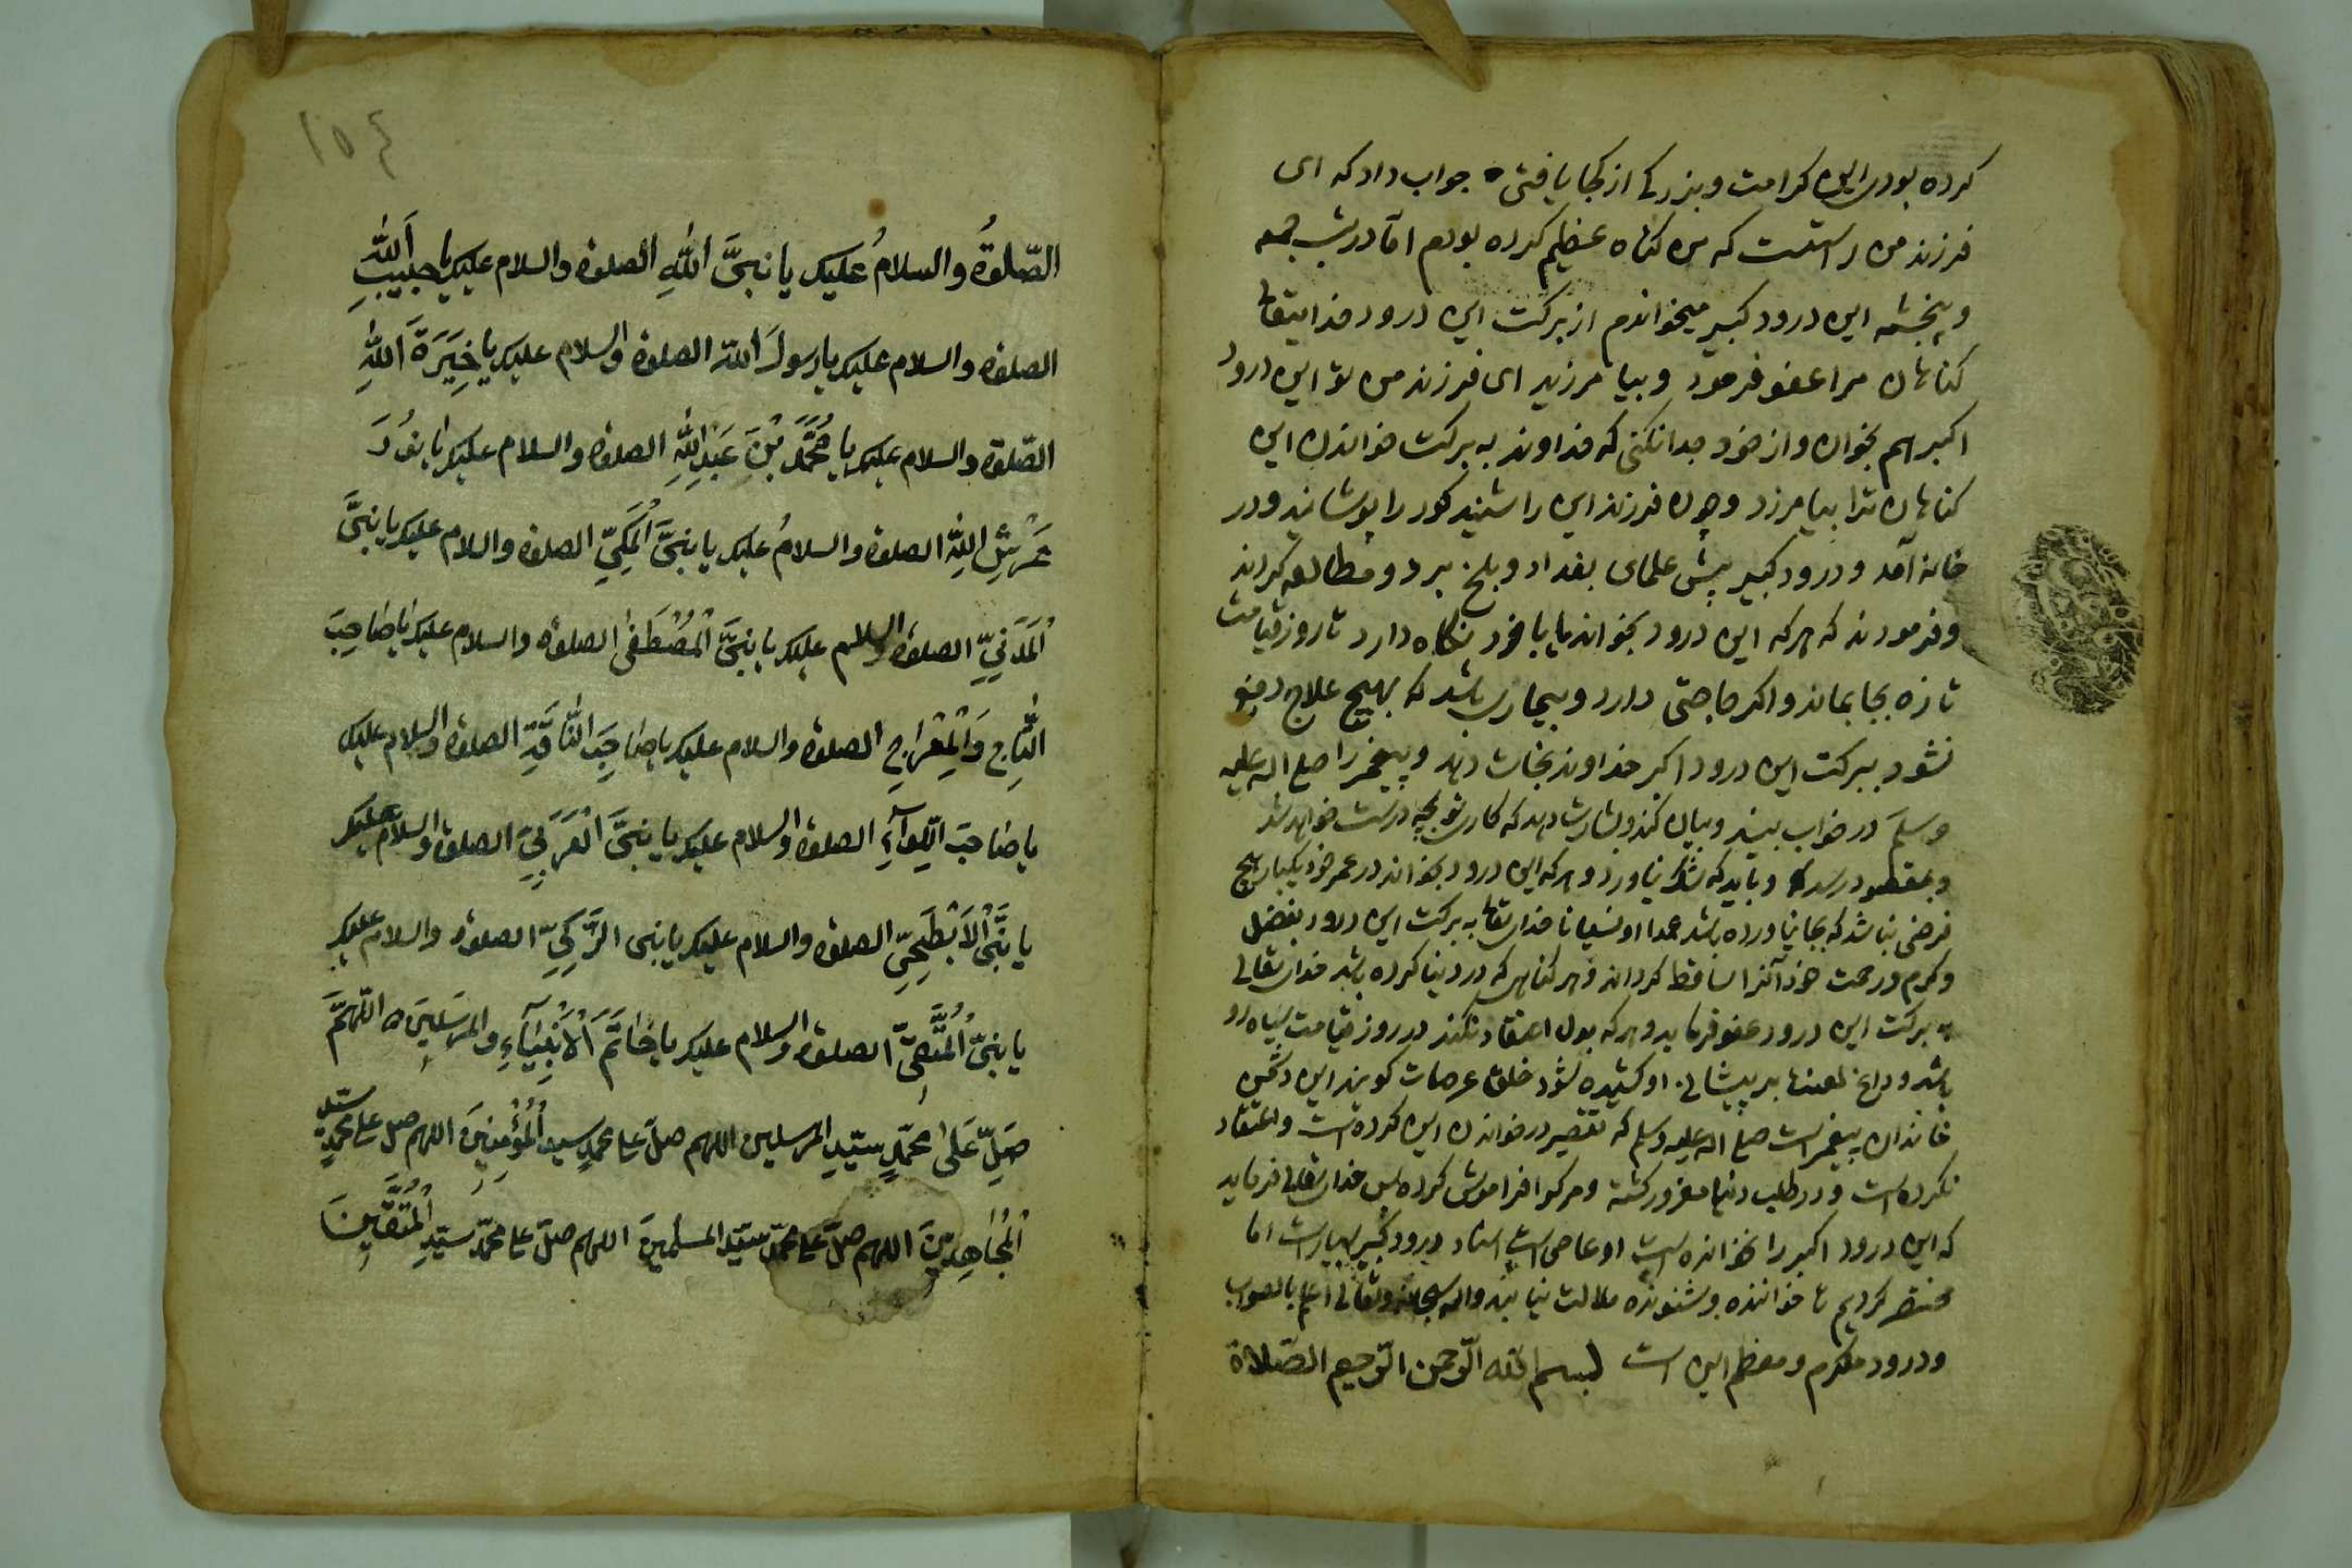 کرده بودی این کرامت و بزرکی از کجا یافتی جواب داد که ای
فرزند من راستست که من کناه عظیم کرده بودم اما در شب جمعه
و پنجشنبه این درود کبیر میخواندم از برکت این درود خدایتعا
کناهان مرا عفو فرمود و بیامرزید ای فرزند من تو این درود
اکبر هم بخوان و از خود جدا نکنی که خداوند به برکت خواندن این
کناهان ترا بیامرزد و چون فرزند این را شنید کور را پوشانید و در
خانه آمد و درود کبیر پیش علمای بغداد و بلخ برد و مطالعه کردند
و فرمودند که هر که این درود بخواند یا با خود نکاه دارد تا روز قیامت
تازه بجا بماند و اکر حاجتی دارد و بیماری باشد که بهیچ علاج دفع
نشود ببرکت این درود اکبر خداوند نجات دهد و پیغمبر را صلی الله علیه
وسلم در خواب بیند و بیان کند و بشارت دهد که کار تو درست خواهد شد
و بمقصود رسد و باید که شک نیاورد و هر که این درود بخواند در عمر خود یکبار هیچ
فرضی نباشد که بجا نیاورده باشد عمدا او نسیانا خدایتعا به برکت این درود بفضل
و کرم و رحمت خود آنرا ساقط کرداند و هر کناهی که در دنیا کرده باشد خدای تعالی
به برکت این درود عفو فرماید و هر که بدل اعتقاد نکند در روز قیامت سیاه رو
باشد و داغ لعنتها بر پیشانی او کشیده شود خلق عرصات کویند این دشمن
خاندان پیغمبر است صلی الله علیه وسلم که تقصیر در خواندن این کرده است و اعتقاد
نکرده است و در طلب دنیا مغرور کشته و مرک را فراموش کرده پس خدای تعالی فرماید
که این درود اکبر را نخوانده است او عاصی است اسناد درود کبیر بسیار است اما
مختصر کردیم تا خواننده و شنونده ملالت نیابند والله سبحانه وتعالی اعلم بالصواب
و درود مکرم و معظم این است بسم الله الرّحمن الرّحیم الصّلاة
١٥٤
الصّلوةُ والسلامُ علیک یا نبیَّ اللهِ الصلوة والسلام علیک یا حبیبَ اللهِ
الصلوة والسلام علیک یا رسولَ الله الصلوة والسلام علیک یا خِیَرَةَ اللهِ
الصّلوة والسلام علیک یا مُحَمَّدَ بْنَ عَبْدِ اللهِ الصلوة والسلام علیک یا نورَ
عَرْشِ اللهِ الصلوة والسلامُ علیک یا نبیَّ الْمَکِّیِّ الصلوة والسلام علیک یا نبیَّ
الْمَدَنِیِّ الصلوة والسلام علیک یا نبیَّ الْمُصْطَفیٰ الصلوة والسلام علیک یا صاحِبَ
التّاجِ وَالْمِعْراجِ الصلوة والسلام علیک یا صاحِبَ النّاقَةِ الصلوة والسلام علیک
یا صاحبَ اللِّوآءِ الصلوة والسلام علیک یا نبیَّ الْعَرَبِیِّ الصلوة والسلام علیک
یا نبیَّ الْاَبْطَحِیِّ الصلوة والسلام علیک یا نبی الزَّکِیِّ الصلوة والسلام علیک
یا نبیَّ الصلوة والسلام علیک یا خاتَمَ الْاَنْبِیآءِ والمرسَلینَ اللّهمَّ
صَلِّ عَلیٰ محمّدٍ سیّدِ المرسلین اللهم صلّ علی محمدٍ سید الْمُؤْمِنِینَ اللهم صل علی محمدٍ سیّد
الْمُجاهِدینَ اللهم صلّ علی محمّد سیّد المسلمینَ اللهم صلّ علی محمّد سیّدِ الْمُتَّقینَ